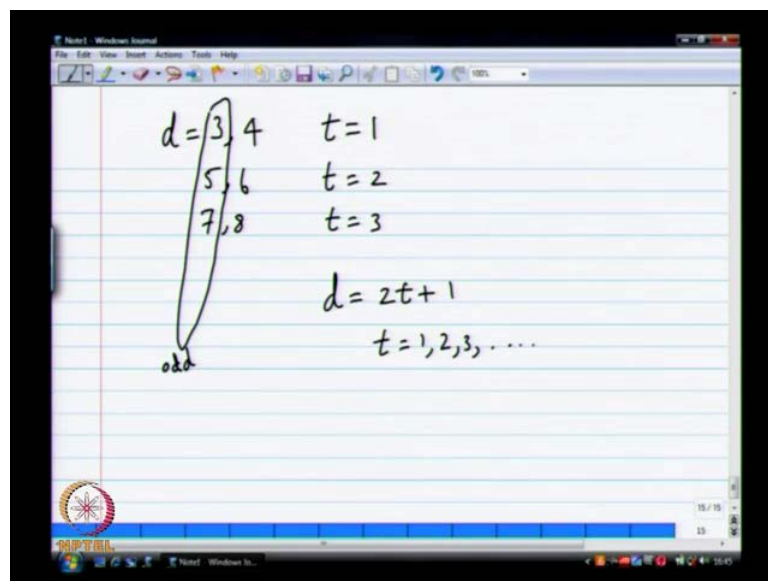 Note1 - Windows Journal
File Edit View Insert Actions Tools Help
100%
d = 3, 4 t = 1
5, 6 t = 2
7, 8 t = 3
d = 2t + 1
t = 1, 2, 3, ....
odd
15 / 15
15
NPTEL
Note1 - Windows Jo...
16:45